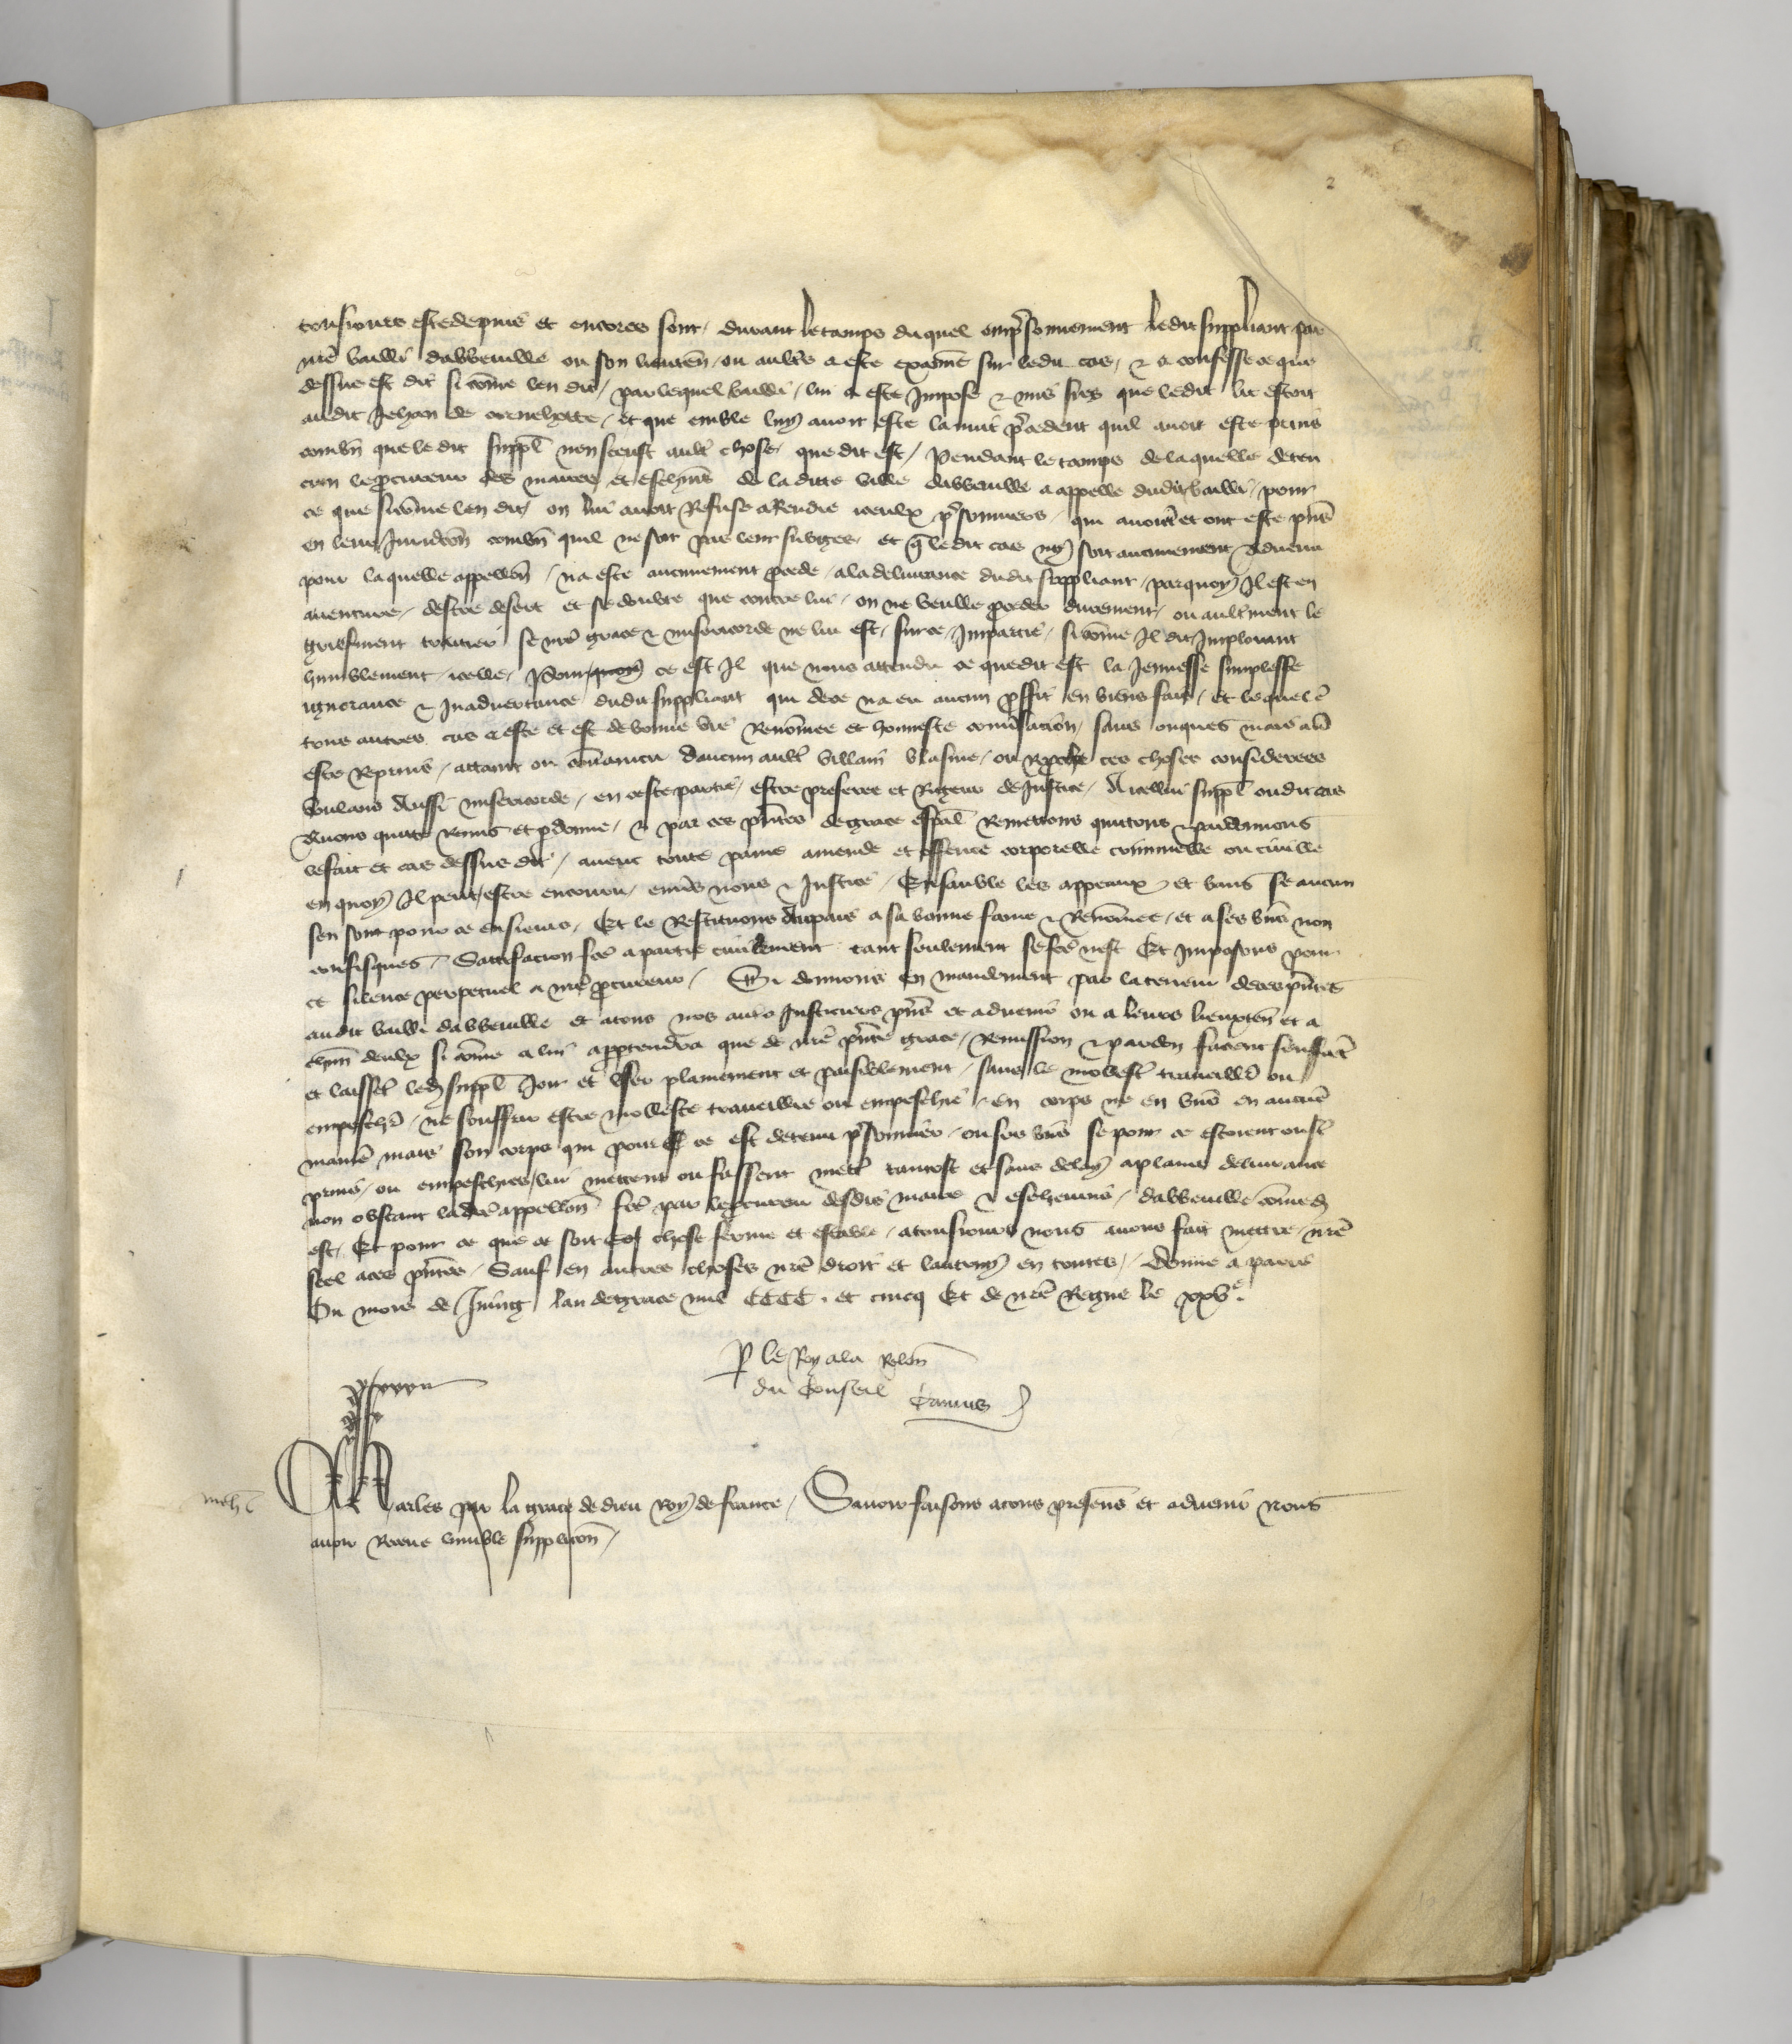 2
tousiours este depuis et encores sont / durant le tamps duquel emp̃sonnement ledit suppliant par
nr̃e bailli dabbeuille ou son lieuten̄ / ou aultr̃s a este examiñe sur ledit cas / & a confesse ce que
dessus est dit si cõme len dit / par lequel bailli / lui a este Impose & mis sus que ledit lit estoit
audit Jehan de / et que emble luy auoit este la nuit p̃cedent quil auoit este prins
combñ que le dit suppl̃ nen sceust ault̃ chose / que dit est / Pendant le tamps de laquelle deten
cion le ꝓcureur des maieur et escheuĩs de la ditte ville dabbeuille a appelle dudit bailli / pour
ce que si cõme len dit / on lui auoit Refuse a Rendre iceulx p̃sonniers / qui auoiẽt et ont este pr̃is
en leur Juridic̃on combñ quil ne soit pas leur subget / et q̃ le dit cas ny soit aucunement aduenu
pour laquelle appellac̃on / na este aucunement ꝓcede / a la deliurance dudit suppliant / par quoy Il est en
auenture / destre desert et se doubte que contre lui / on ne veulle ꝓceder durement / ou aultr̃ment le
griefment traitier se nr̃e grace & misericorde ne lui est / sur ce / Impartie / si cõme Il dit / Implorant
humblement / icelle / Pour quoy ce est Il que nous attendu ce que dit est la Jennesse simplesse
ignorance & Inaduertance dudit suppliant qui de ce na eu aucun ꝓffit en biens fais / et lequel ẽ
tous autres cas a este et est de bonne vie Renõmee et honneste conũsacion / sans onques mais auõ
este Reprins / attaint ou cõuaincu daucun ault̃ villain blasme / ou Reproche ces choses considerees
Voulans Aussi misericorde / en ceste partie / estre preferee et Rigeur de Justice / A icellui suppl̃ ou dit cas
Auons quitte Remis et ꝑdonne / & par ces p̃ntes de grace esp̃al Remettons quittons & pardonnons
le fait et cas dessus dit / auenc toute paine amende et offence corporelle criminelle ou ciuille
en quoy Il peut estre encouru / enuers nous & Justice / Ensamble les appeaux et bans se aucun
sen sont pour ce ensieuis / Et le Restituons Au pais a sa bonne fame & Renõmee / et a ses biẽs non
confisques / Satisfacion fẽe a partie ciuilement tant seulement se fẽe nest Et Imposons pour
ce silence perpetuel a nr̃e ꝓcureur / Si donnons en mandement par la teneur de ces p̃ntes
au dit bailli dabbeuille et a tous nos aultr̃s Justiciers p̃ñs et aduenir ou a leurs lieuxten̄ et a
chũn deulx si cõme a lui appartendra que de nr̃e p̃nte grace / Remission & pardon facent seuffrẽt
et laisset̃ led̃ suppl̃ Joir et vser plainement et paisiblement / sans le molest̃ trauaillier ou
empeschier / ne souffrir estre moleste trauaillie ou empeschie / en corps ne en biẽs en aucũe
manĩe mais son corps qui pour ce est detenu p̃sonnier / ou ses biẽs se pour ce estoient ou
prins / ou empeschies / lui mettent ou fassent mettr̃ tantost et sans delay a plaine deliurance
non obstant ladĩe appellac̃on fẽe par le ꝓcureur desdis maire & escheuins / dabbeuille cõme dit
est / Et pour ce que ce soit chose ferme et estable / a tousiours nous auons fait mettre / nr̃e
seel a ces p̃ntes / Sauf en autres choses nr̃e droit et lautruy en toutes / Donne a paris
Ou mois de Juing lan de grace mil CCCC . et cincq Et de nr̃e Regne le xxvᵉ .
P le Roy a la Relac̃on
du Conseil Camus
Charles par la grace de dieu Roy de france / Sauoir faisons a tous presens et aduenir Nous
auoir Receue humble supplicac̃on /